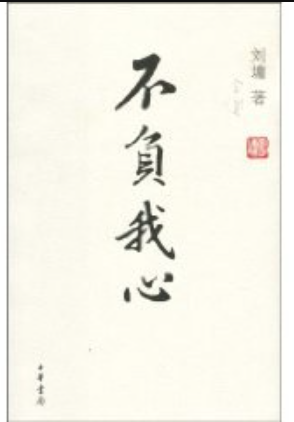 刘墉 著
不負我心
中華書局